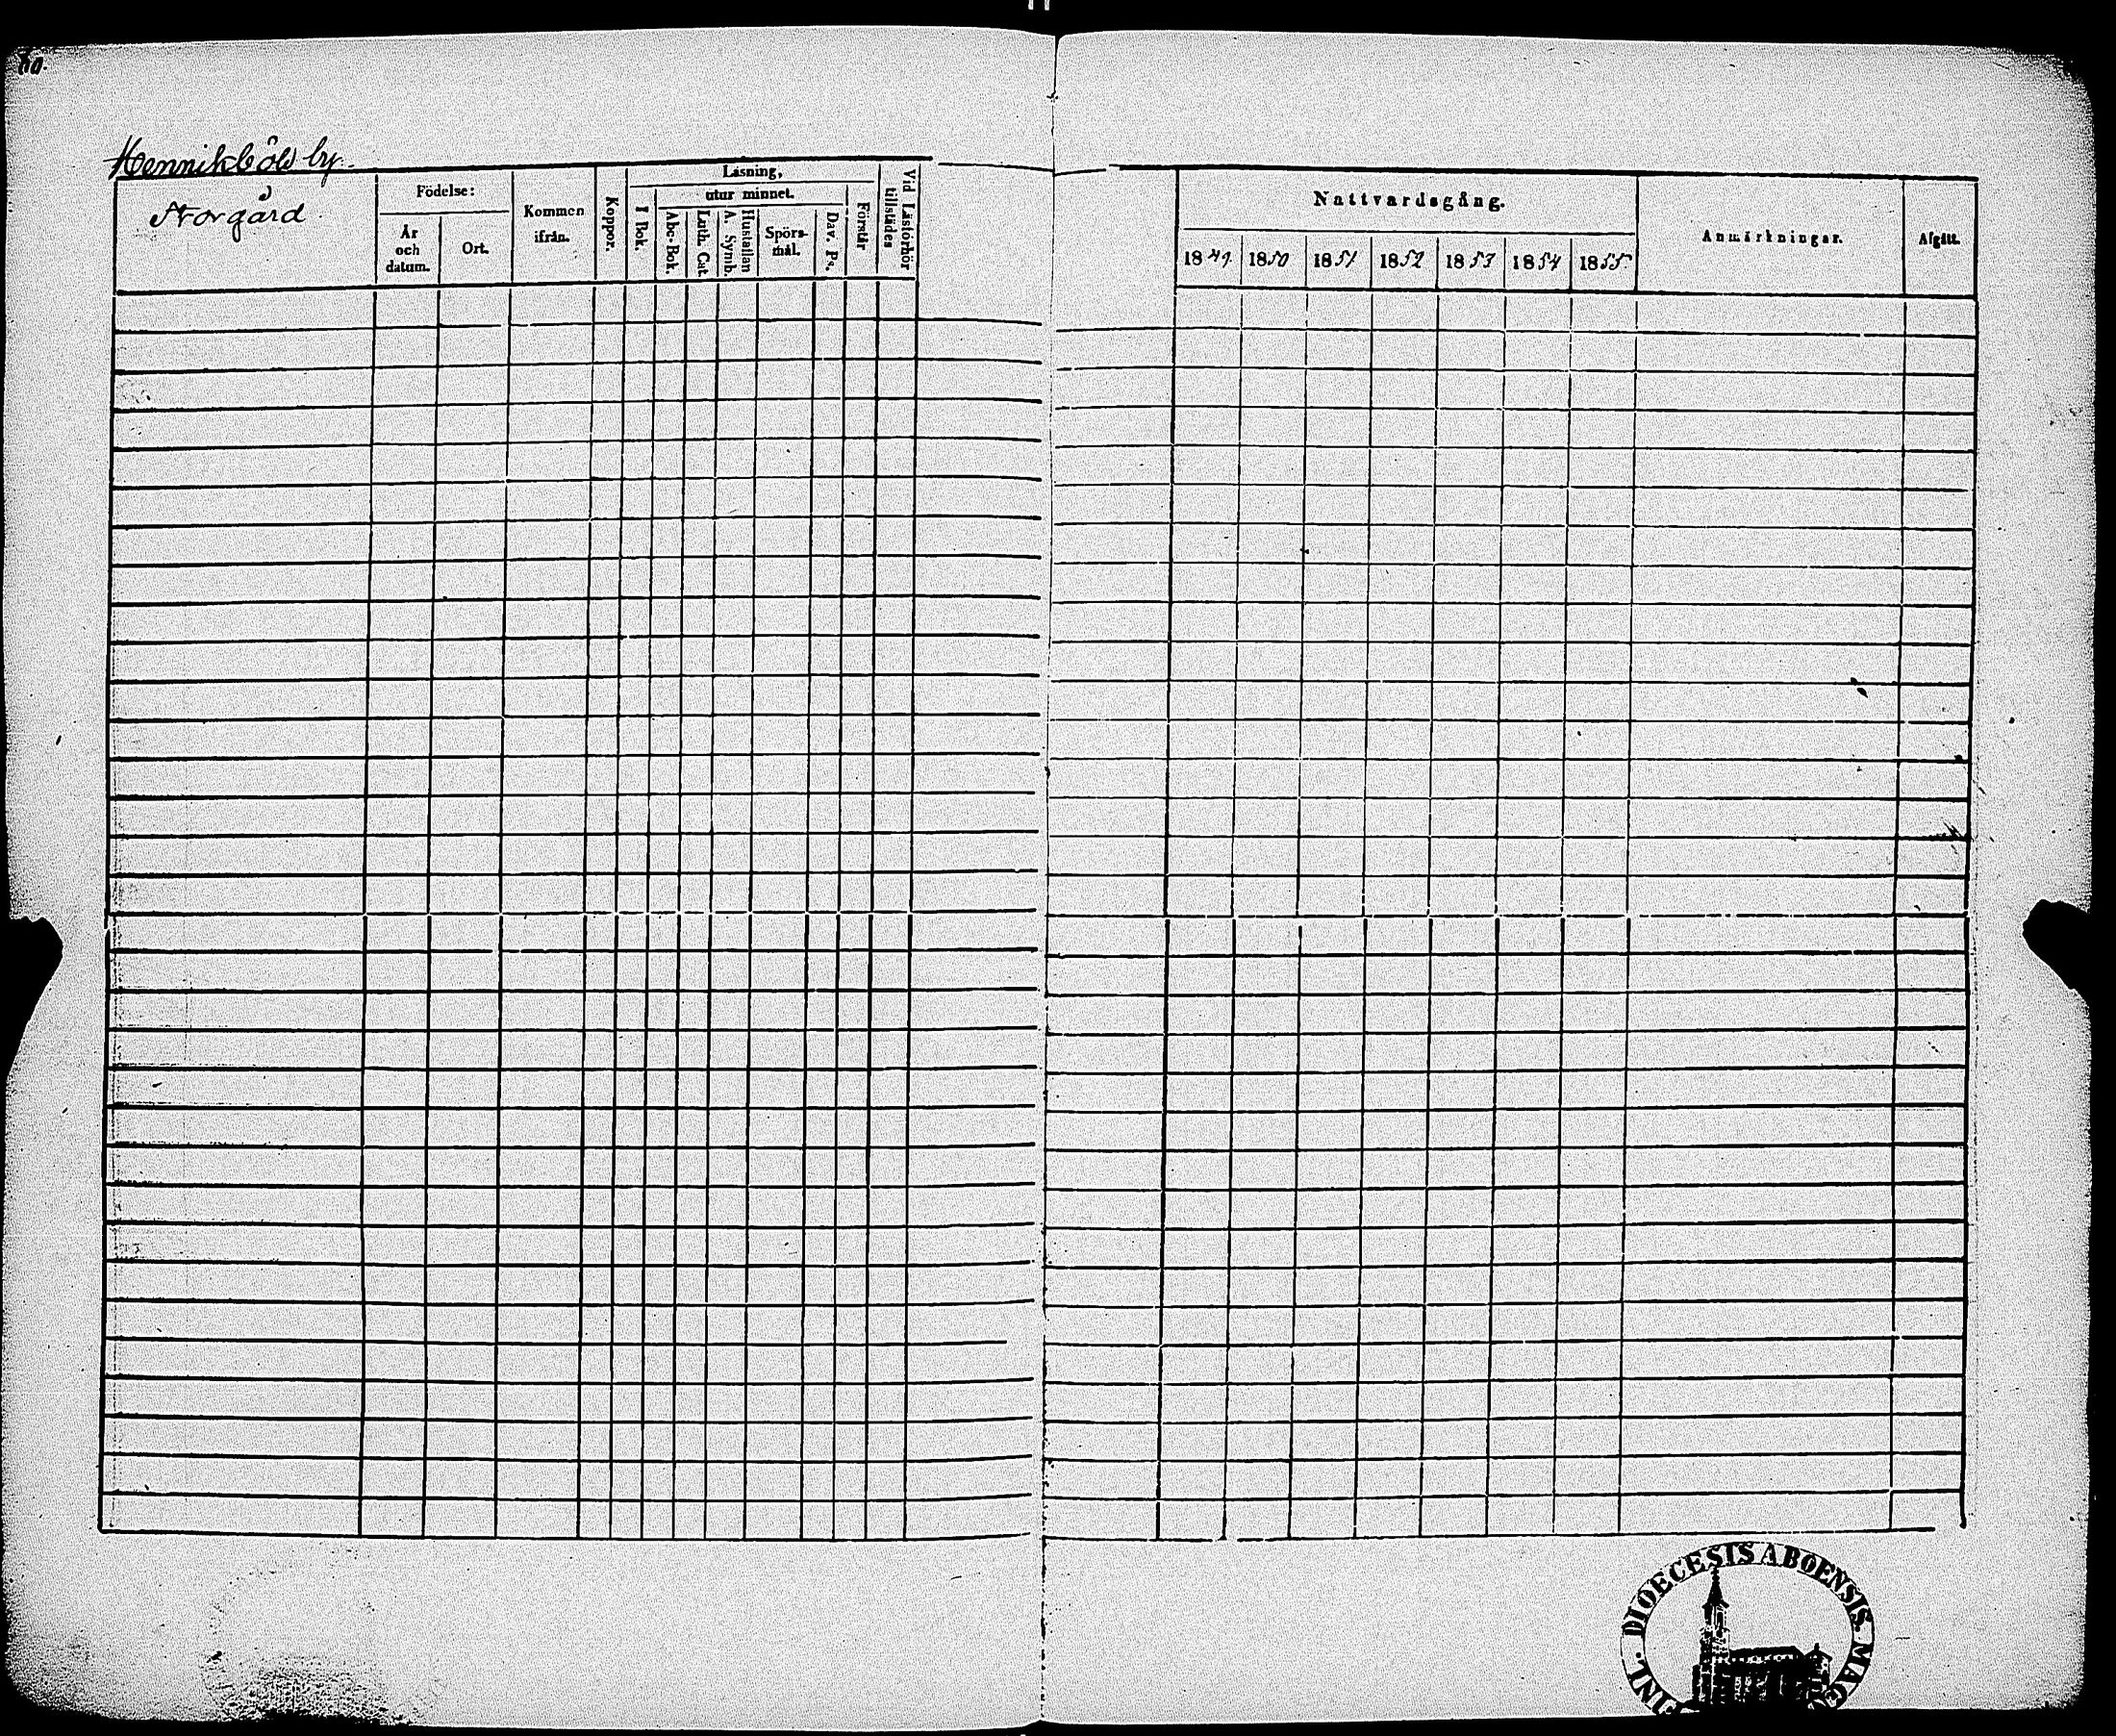 Hennikböls by.
Norgård
Födelse:
År
och
datum.
Ort.
Kommen
ifrån.
Koppor.
Läsning,
utur minnet.
I Bok.
Abc-Bok.
Luth. Cat.
Hustaflan
A. Symb.
Spörs-
mål.
Dav. Ps.
Förstår
Vid Läsförhör
tillstädes
Nattvardsgång.
1849. 1850 1851 1852 1853 1854 1855.
Anmärkningar.
Afgått.
DIOECESIS ABOENSIS